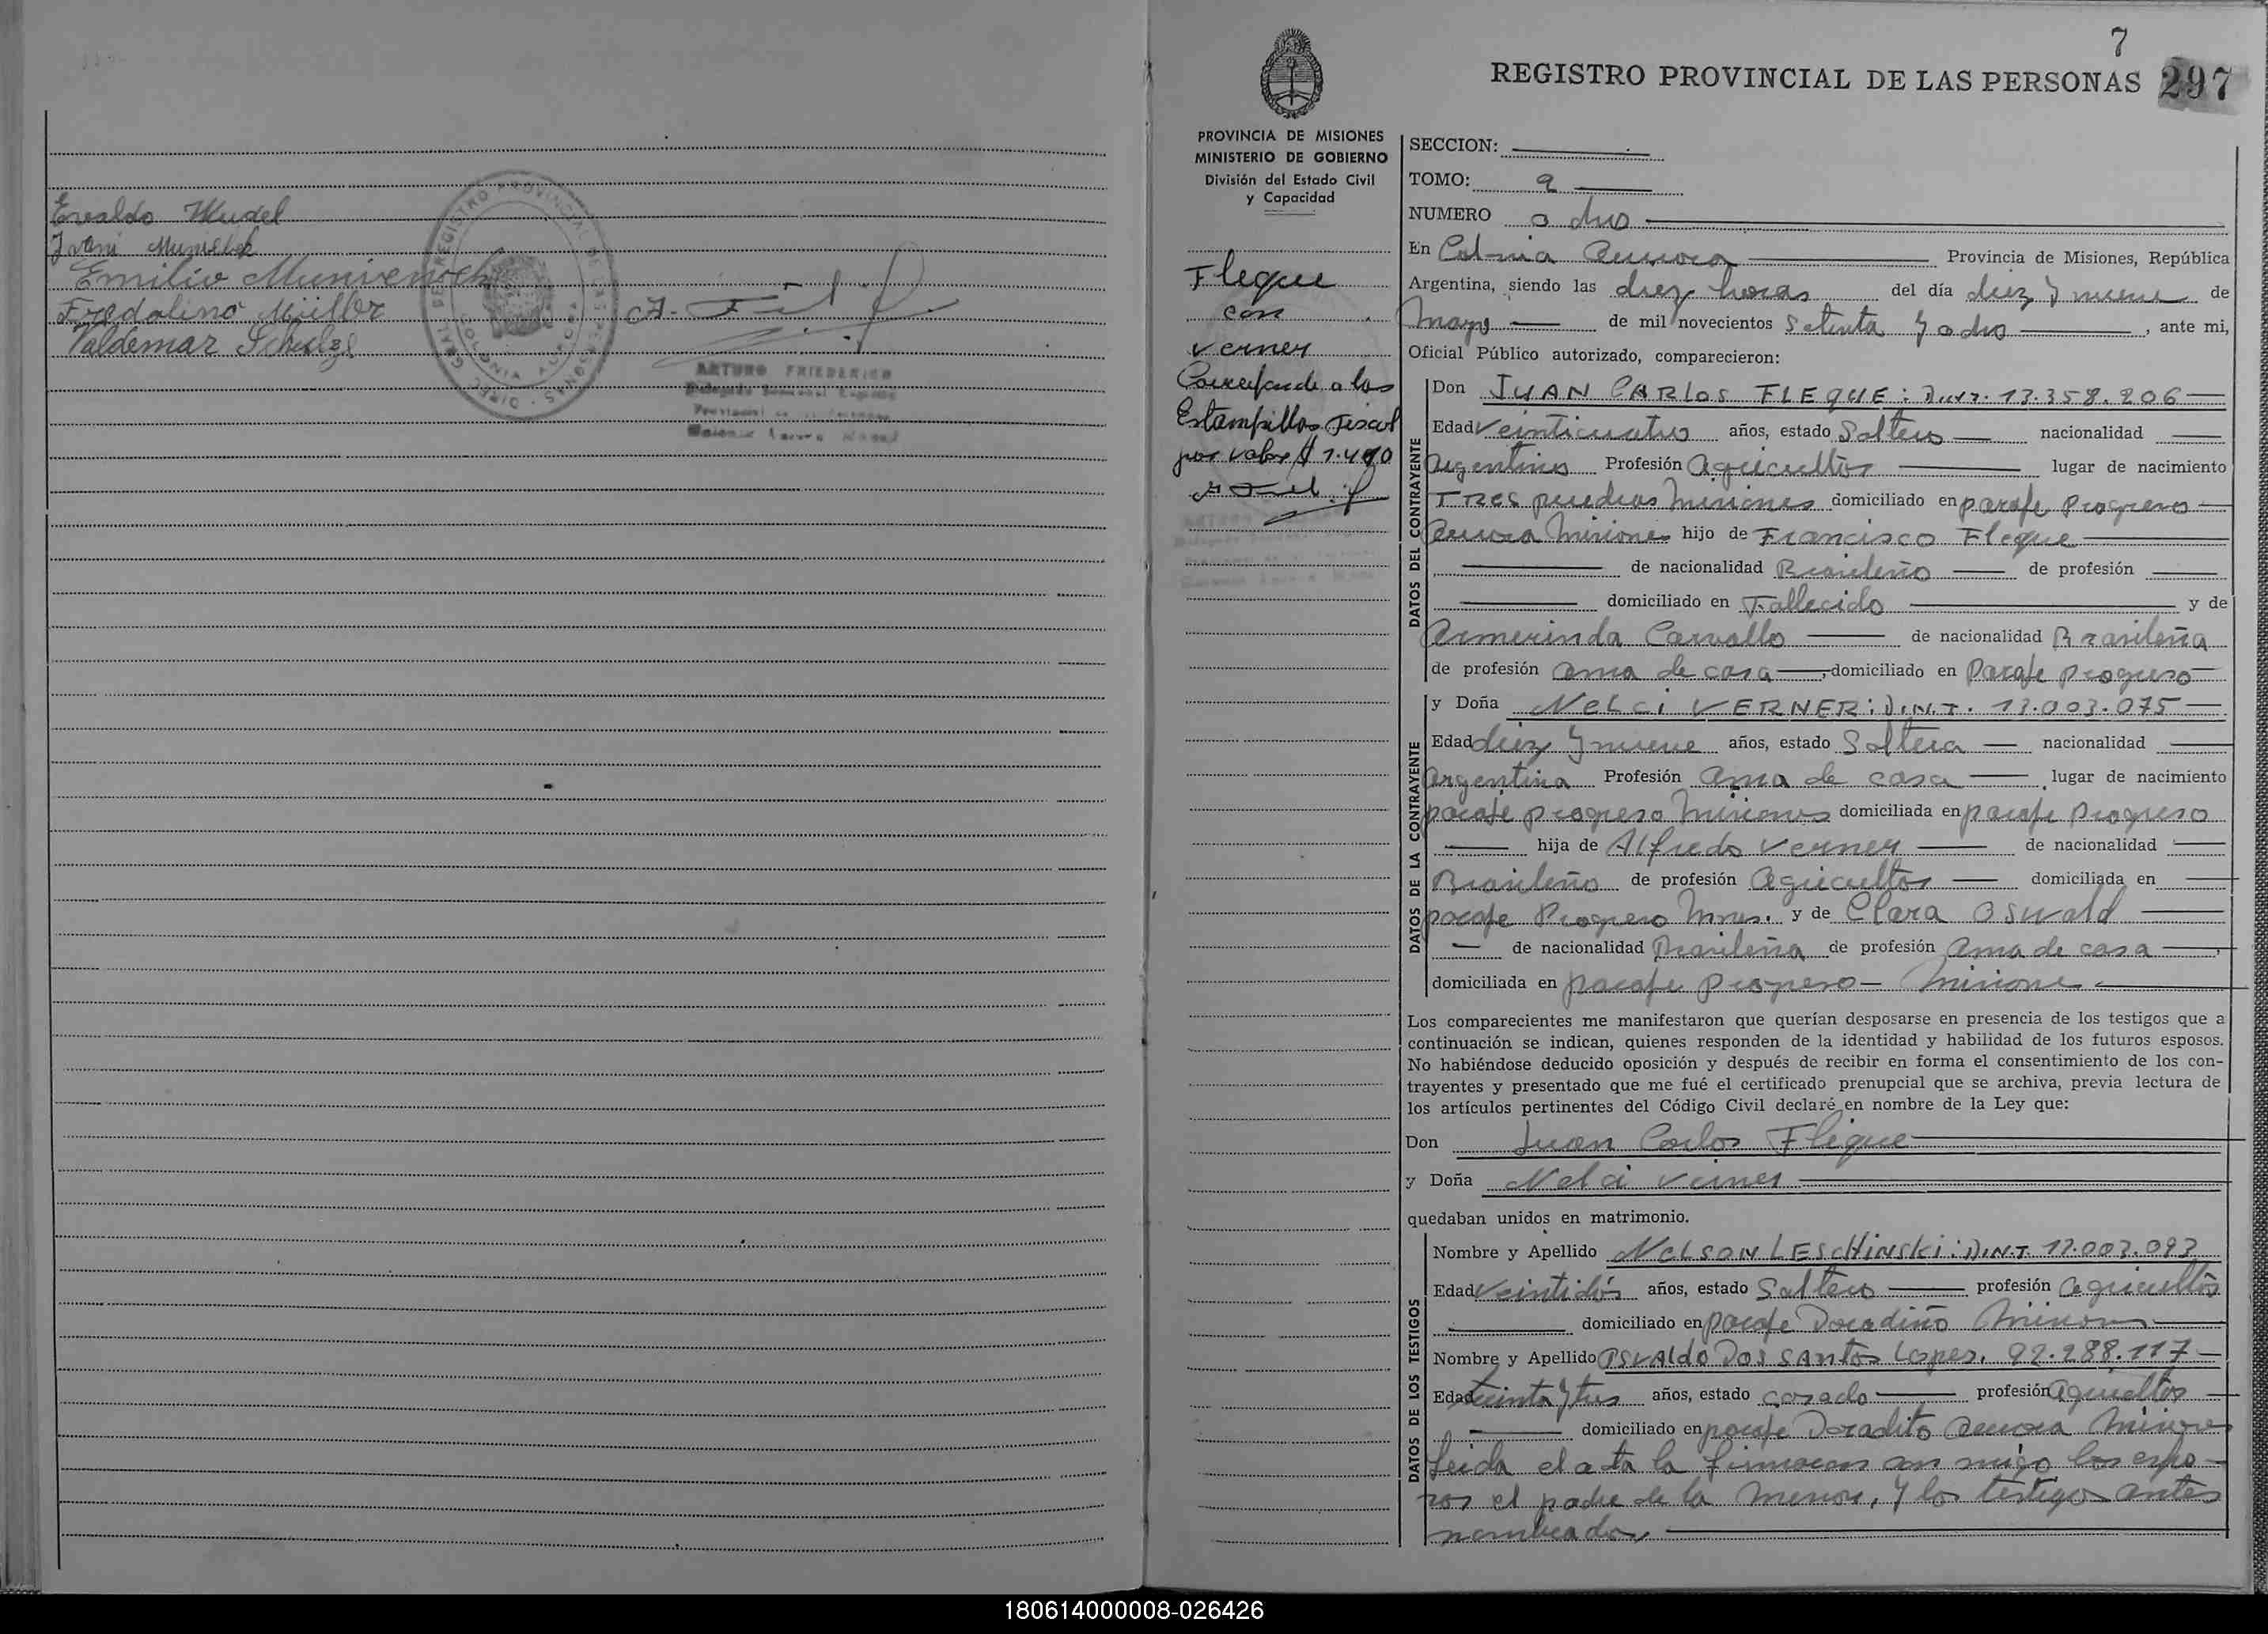 Evaldo Mudel
Ivoni Munievek
Emilio Munievenoek
Fredolino Müller
Valdemar Schulze
ARTURO FRIEDERICH
7
REGISTRO PROVINCIAL DE LAS PERSONAS 297
PROVINCIA DE MISIONES
MINISTERIO DE GOBIERNO
División del Estado Civil
y Capacidad
Fleque
con
Verner
Corresponde a las
Estampillas Fiscal
por valor $ 1.490
SECCION:
TOMO: 9
NUMERO ocho
En Colonia Aurora Provincia de Misiones, República
Argentina, siendo las diez horas del día diez y nueve de
mayo de mil novecientos Setenta y ocho, ante mi,
Oficial Público autorizado, comparecieron:
DATOS DEL CONTRAYENTE
Don JUAN CARLOS FLEQUE: D.N.I. 13.358.206
Edad Veinticuatro años, estado Soltero nacionalidad
Argentino Profesión Agricultor lugar de nacimiento
Tres piedras Misiones domiciliado en paraje Progreso
Aurora Misiones hijo de Francisco Fleque
de nacionalidad Brasileño de profesión
domiciliado en Fallecido y de
Armerinda Carvallo de nacionalidad Brasileña
de profesión ama de casa, domiciliado en Paraje Progreso
DATOS DE LA CONTRAYENTE
y Doña Nelci VERNER: D.N.I. 13.003.075
Edad diez y nueve años, estado Soltera nacionalidad
Argentina Profesión ama de casa, lugar de nacimiento
paraje progreso Misiones domiciliada en paraje Progreso
hija de Alfredo Verner de nacionalidad
Brasileño de profesión Agricultor domiciliada en
paraje Progreso Mnes. y de Clara Oswald
de nacionalidad Brasileña de profesión Ama de casa,
domiciliada en paraje Progreso - Misiones
Los comparecientes me manifestaron que querían desposarse en presencia de los testigos que a
continuación se indican, quienes responden de la identidad y habilidad de los futuros esposos.
No habiéndose deducido oposición y después de recibir en forma el consentimiento de los con-
trayentes y presentado que me fué el certificado prenupcial que se archiva, previa lectura de
los artículos pertinentes del Código Civil declaré en nombre de la Ley que:
Don Juan Carlos Fleque
y Doña Nelci Verner
quedaban unidos en matrimonio.
DATOS DE LOS TESTIGOS
Nombre y Apellido Nelson LESCHINSKI: D.N.I. 13.003.093
Edad Veintidós años, estado Soltero profesión agricultor
domiciliado en paraje Doradiño Misiones
Nombre y Apellido OSVAldo Dos SAntos Lopes. 92.288.117
Edad treinta y tres años, estado casado profesión agricultor
domiciliado en paraje Doradito Aurora Misiones
Leida el acta la firmaron con migo los espo-
sos el padre de la menor, y los testigos antes
nombrados
180614000008-026426